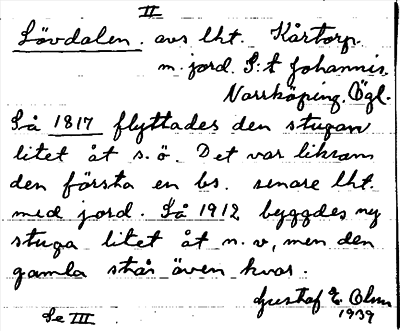 II
Lövdalen. avs lht. Kårtorp.
m. jord. S:t Johannis.
Norrköping. Ögl.
Så 1817 flyttades den stugan
litet åt s.ö. Det var liksom
den första en bs. senare lht.
med jord. Så 1912 byggdes ny
stuga litet åt n.v, men den
gamla står även kvar.
Gustaf E. Olsson
1939
Se III